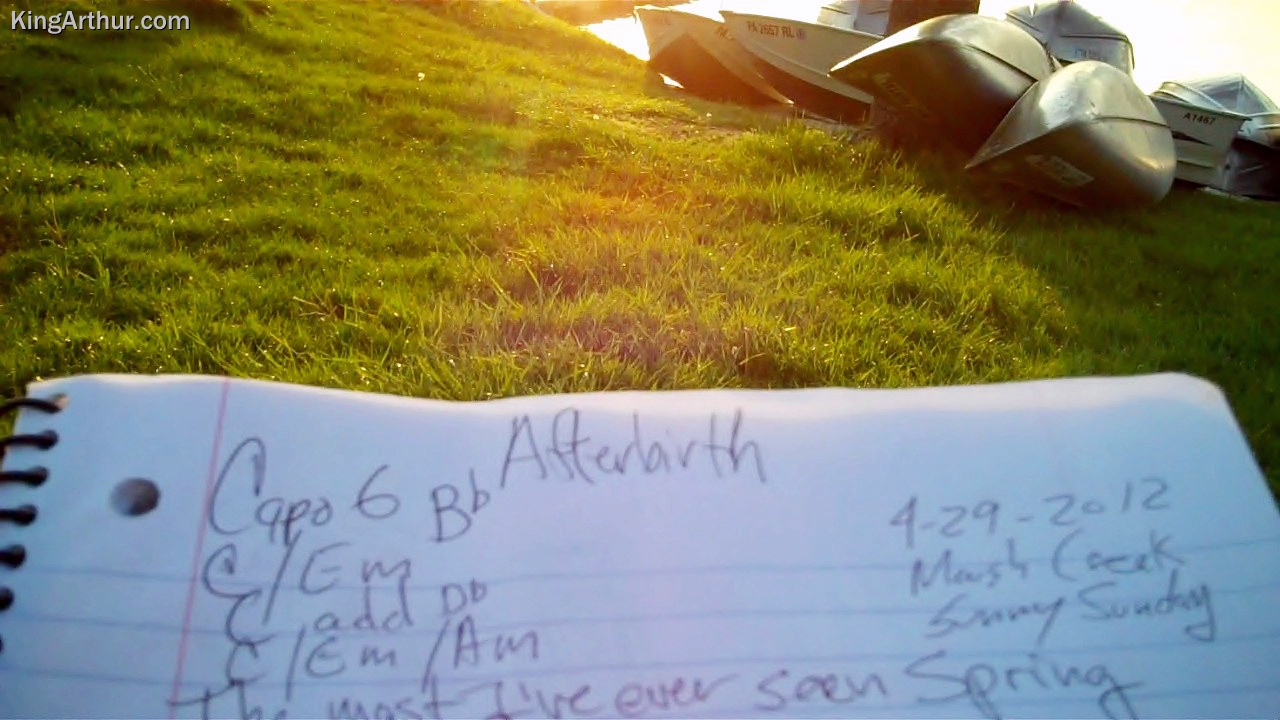 KingArthur.com
PA 2657 RL
A1467
Afterbirth
Capo 6 Bb
4-29-2012
C/Em
Marsh Creek
C add Db
Sunny Sunday
C/Em/Am
The most I've ever seen Spring